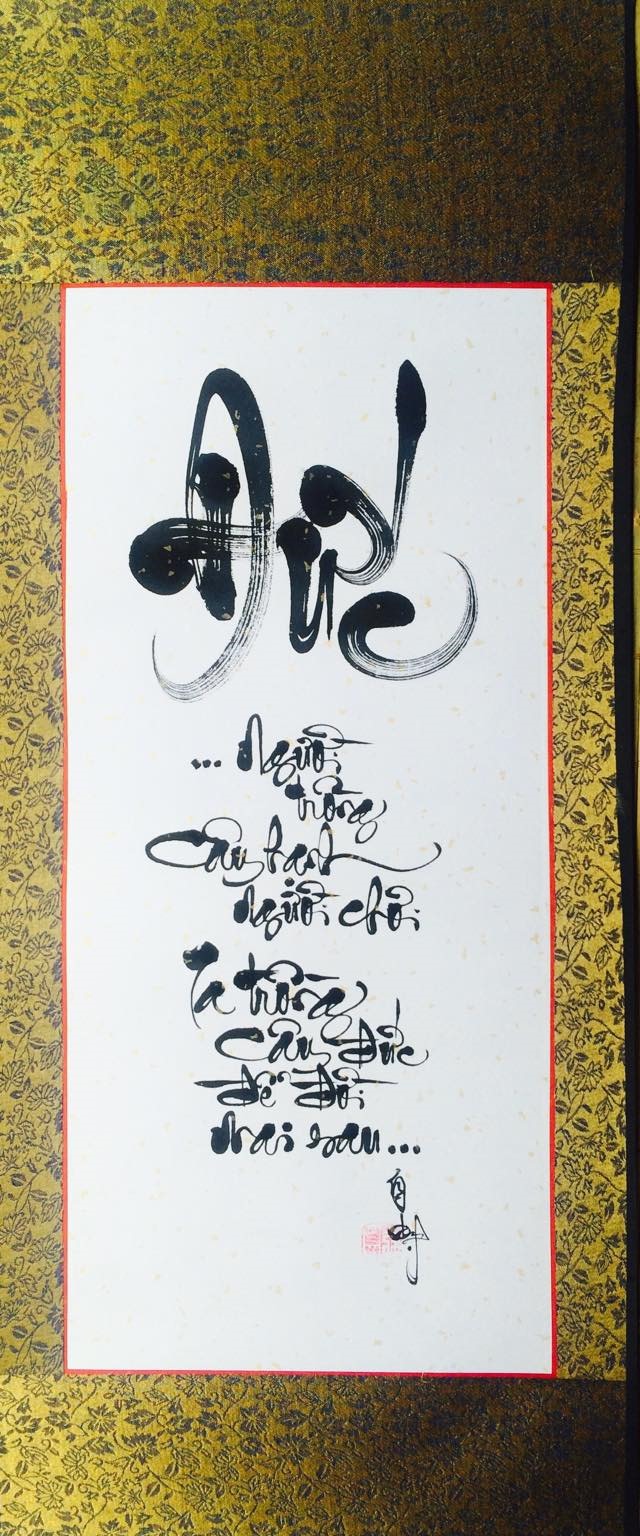 Đức
... Người
trồng
Cây hạnh
người chơi
Ta trồng
Cây Đức
để đời
mai sau...
自